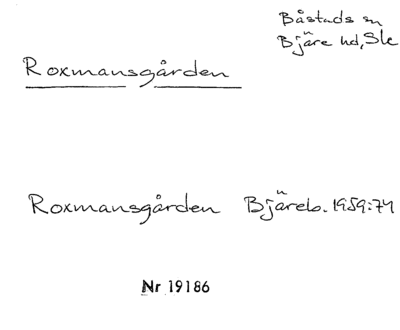 Båstads sn
Bjäre hd, Sk
Roxmansgården
Roxmansgården Bjäreb. 1959:74
Nr 19186